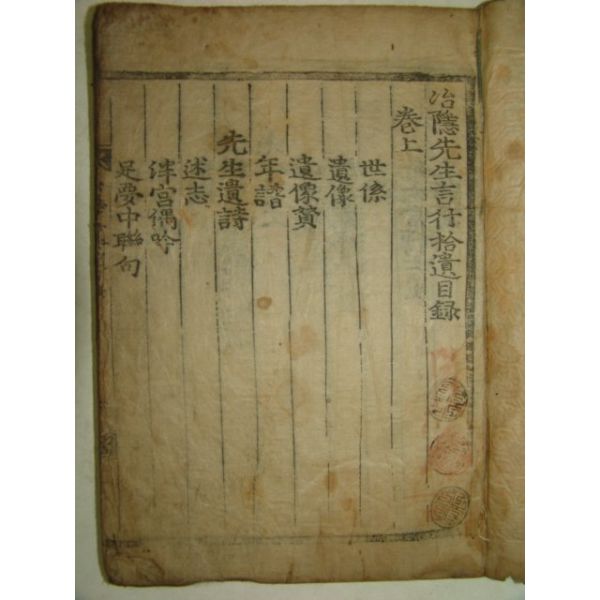 冶隱先生言行拾遺目錄
卷上
世係
遺像
遺像贊
年譜
先生遺詩
述志
泮宮偶吟
足夢中聯句